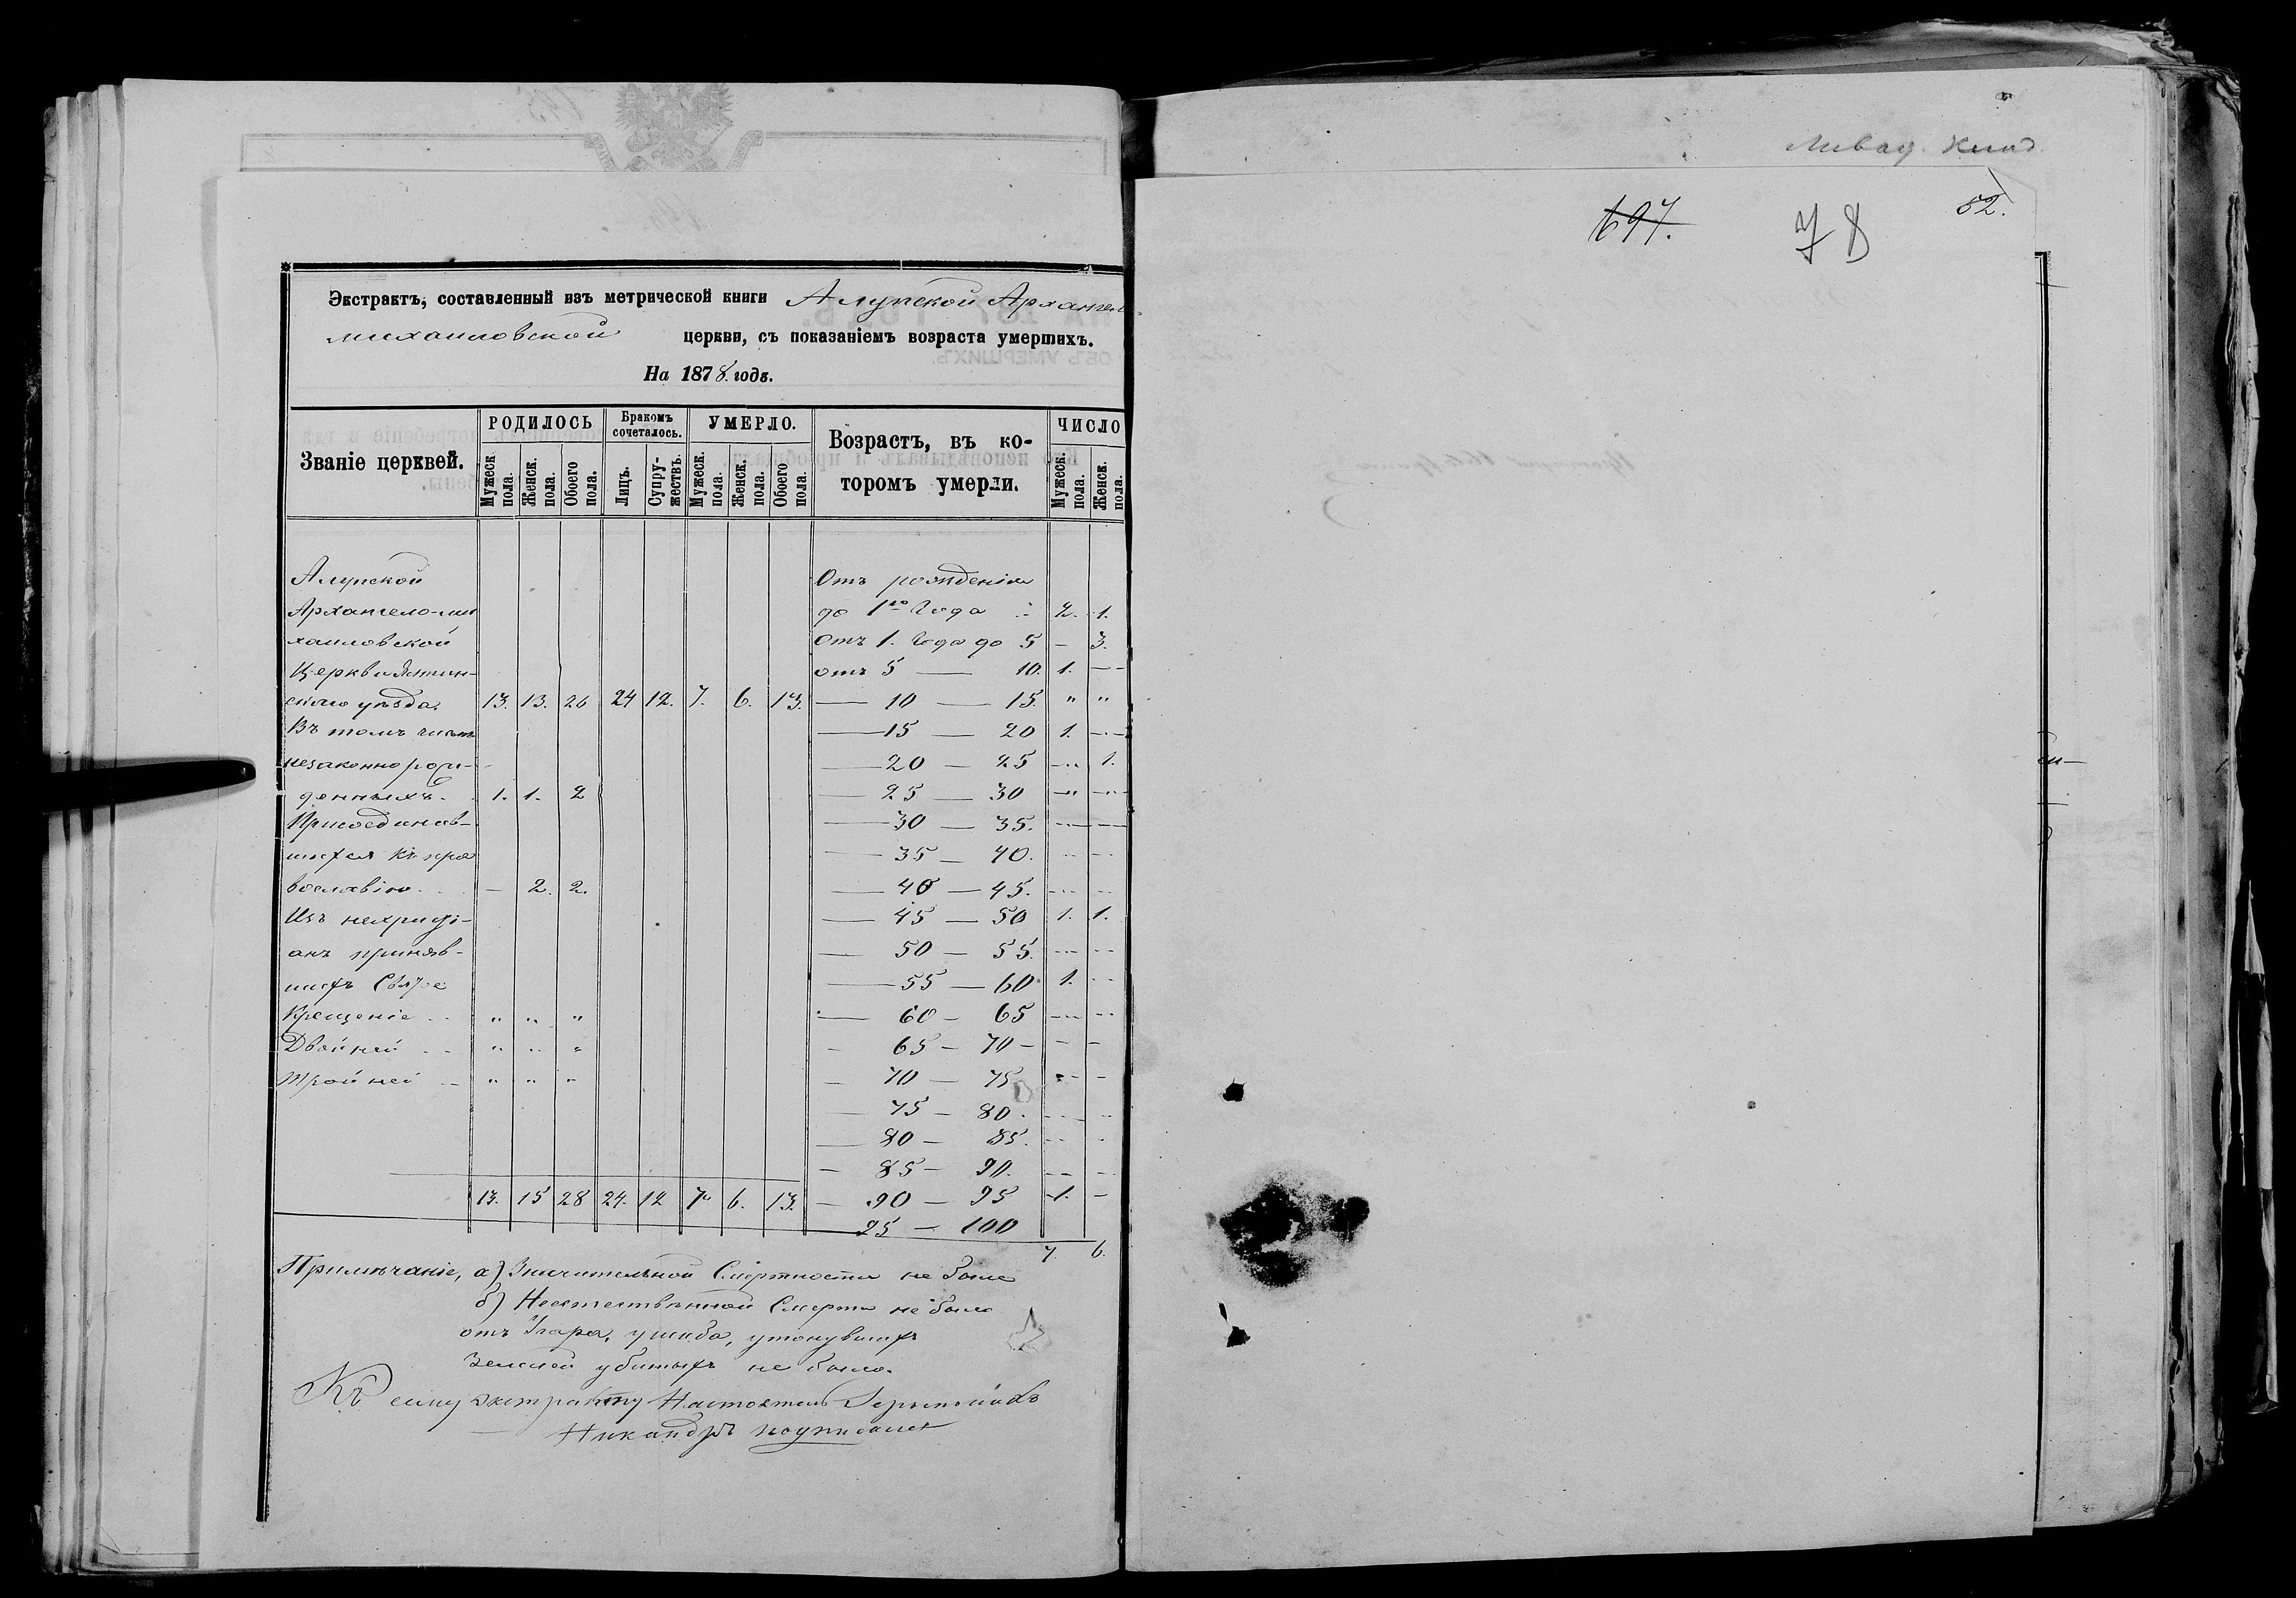 Экстрактъ, составленный изъ метрической книги Алупской Архангел
михаиловской церкви, съ показаніемъ возраста умершихъ.
На 1878 годъ.
Званіе церквей. РОДИЛОСЬ Бракомъ сочеталось. УМЕРЛО. Возрастъ, въ ко- ЧИСЛО
тором умерли.
Мужеск. пола. Женск. пола. Обоего пола. Лицъ. Супру-жествъ. Мужеск. пола. Женск. пола. Обоего пола. Мужеск. пола. Женск. пола.
Алупской Отъ рожденія
Архангело-ми до 1го Года 2. 1.
хаиловской Отъ 1. Года до 5 — 3.
Церкви Ялтин- отъ 5 — 10. 1. —
скаго уѣзда. 13. 13. 26 24 12. 7. 6. 13. — 10 — 15. " "
Въ томъ числѣ — 15 — 20 1. —
незаконнорож- — 20 — 25 — 1.
денныхъ. 1. 1. 2 — 25 — 30 — —
Присоединив- — 30 — 35. — —
шихся къ пра — 35 — 40.
вославію — 2. 2. — 40 — 45.
Изъ нехристі- — 45 — 50 1. 1.
анъ приняв- — 50 — 55.
шихъ Святое — 55 — 60 1.
Крещеніе " " " — 60 — 65
Двойней " " " — 65 — 70
Тройней " " " — 70 — 75
— 75 — 80.
— 80 — 85.
— 85 — 90.
13. 15 28 24. 12 7 6. 13. — 90 — 95 1. —
95 — 100
7. 6.
Примѣчаніе, а) Значительной Смертности не было
б) Неестественной Смерти не было
отъ Угара, ушиба, утонувшихъ
Землей убитыхъ не было.
Къ сему экстракту Настоятель Іеромонахъ
Никандръ подписался
Ливад.
697. 78 52.